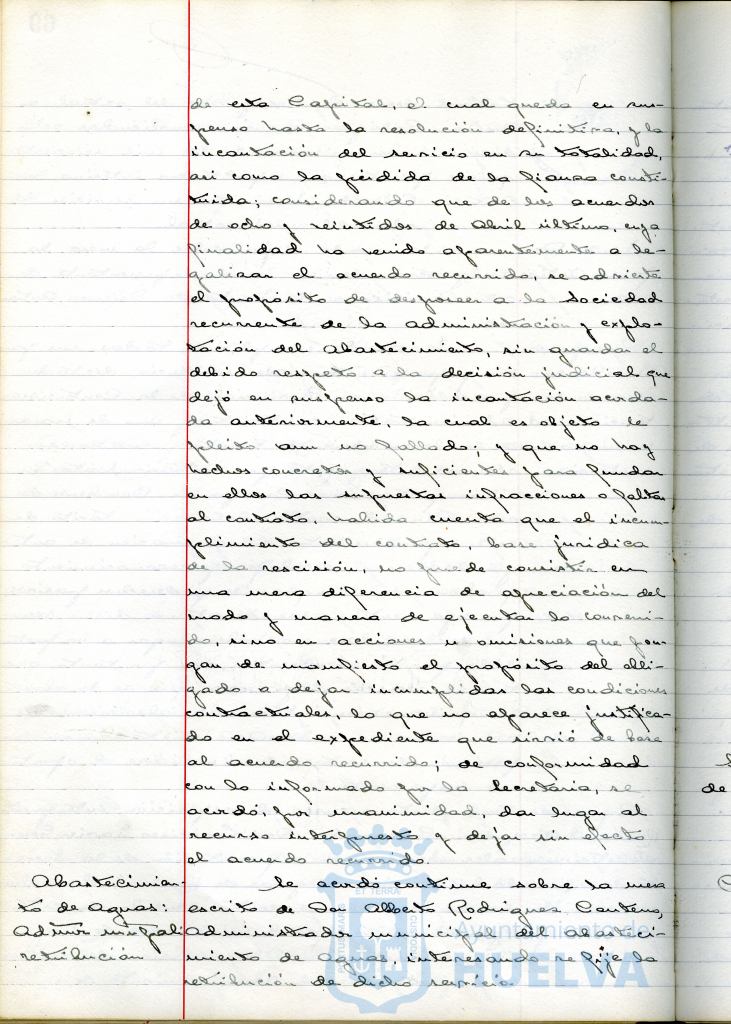 de esta Capital, el cual queda en sus-
penso hasta la resolución definitiva, y la
incautación del servicio en su totalidad,
asi como la pérdida de la fianza consti-
tuida; considerando que de los acuerdos
de ocho y veintidos de Abril último, cuya
finalidad ha venido aparentemente a le-
galizar el acuerdo recurrido, se advierte
el propósito de desposeer a la Sociedad
recurrente de la administración y explo-
tación del Abastecimiento, sin guardar el
debido respeto a la decisión judicial que
dejó en suspenso la incautación acorda-
da anteriormente, la cual es objeto de
pleito aun no fallado; y que no hay
hechos concretos y suficientes para fundar
en ellos las supuestas infracciones o faltas
al contrato, habida cuenta que el incum-
plimiento del contrato, base juridica
de la rescisión, no puede consistir en
una mera diferencia de apreciación del
modo y manera de ejecutar lo conveni-
do, sino en acciones u omisiones que pon-
gan de manifiesto el propósito del obli-
gado a dejar incumplidas las condiciones
contractuales, lo que no aparece justifica-
do en el expediente que sirvió de base
al acuerdo recurrido; de conformidad
con lo informado por la Secretaria, se
acordó, por unanimidad, dar lugar al
recurso interpuesto y dejar sin efecto
el acuerdo recurrido.
Abastecimien-
to de Aguas:
Admor munpal
retribución
Se acordó continue sobre la mesa
escrito de Don Alberto Rodriguez Centeno,
Administrador municipal del abasteci-
miento de Aguas, interesando se fije la
retribución de dicho servicio.
Ayuntamiento de
HUELVA
de